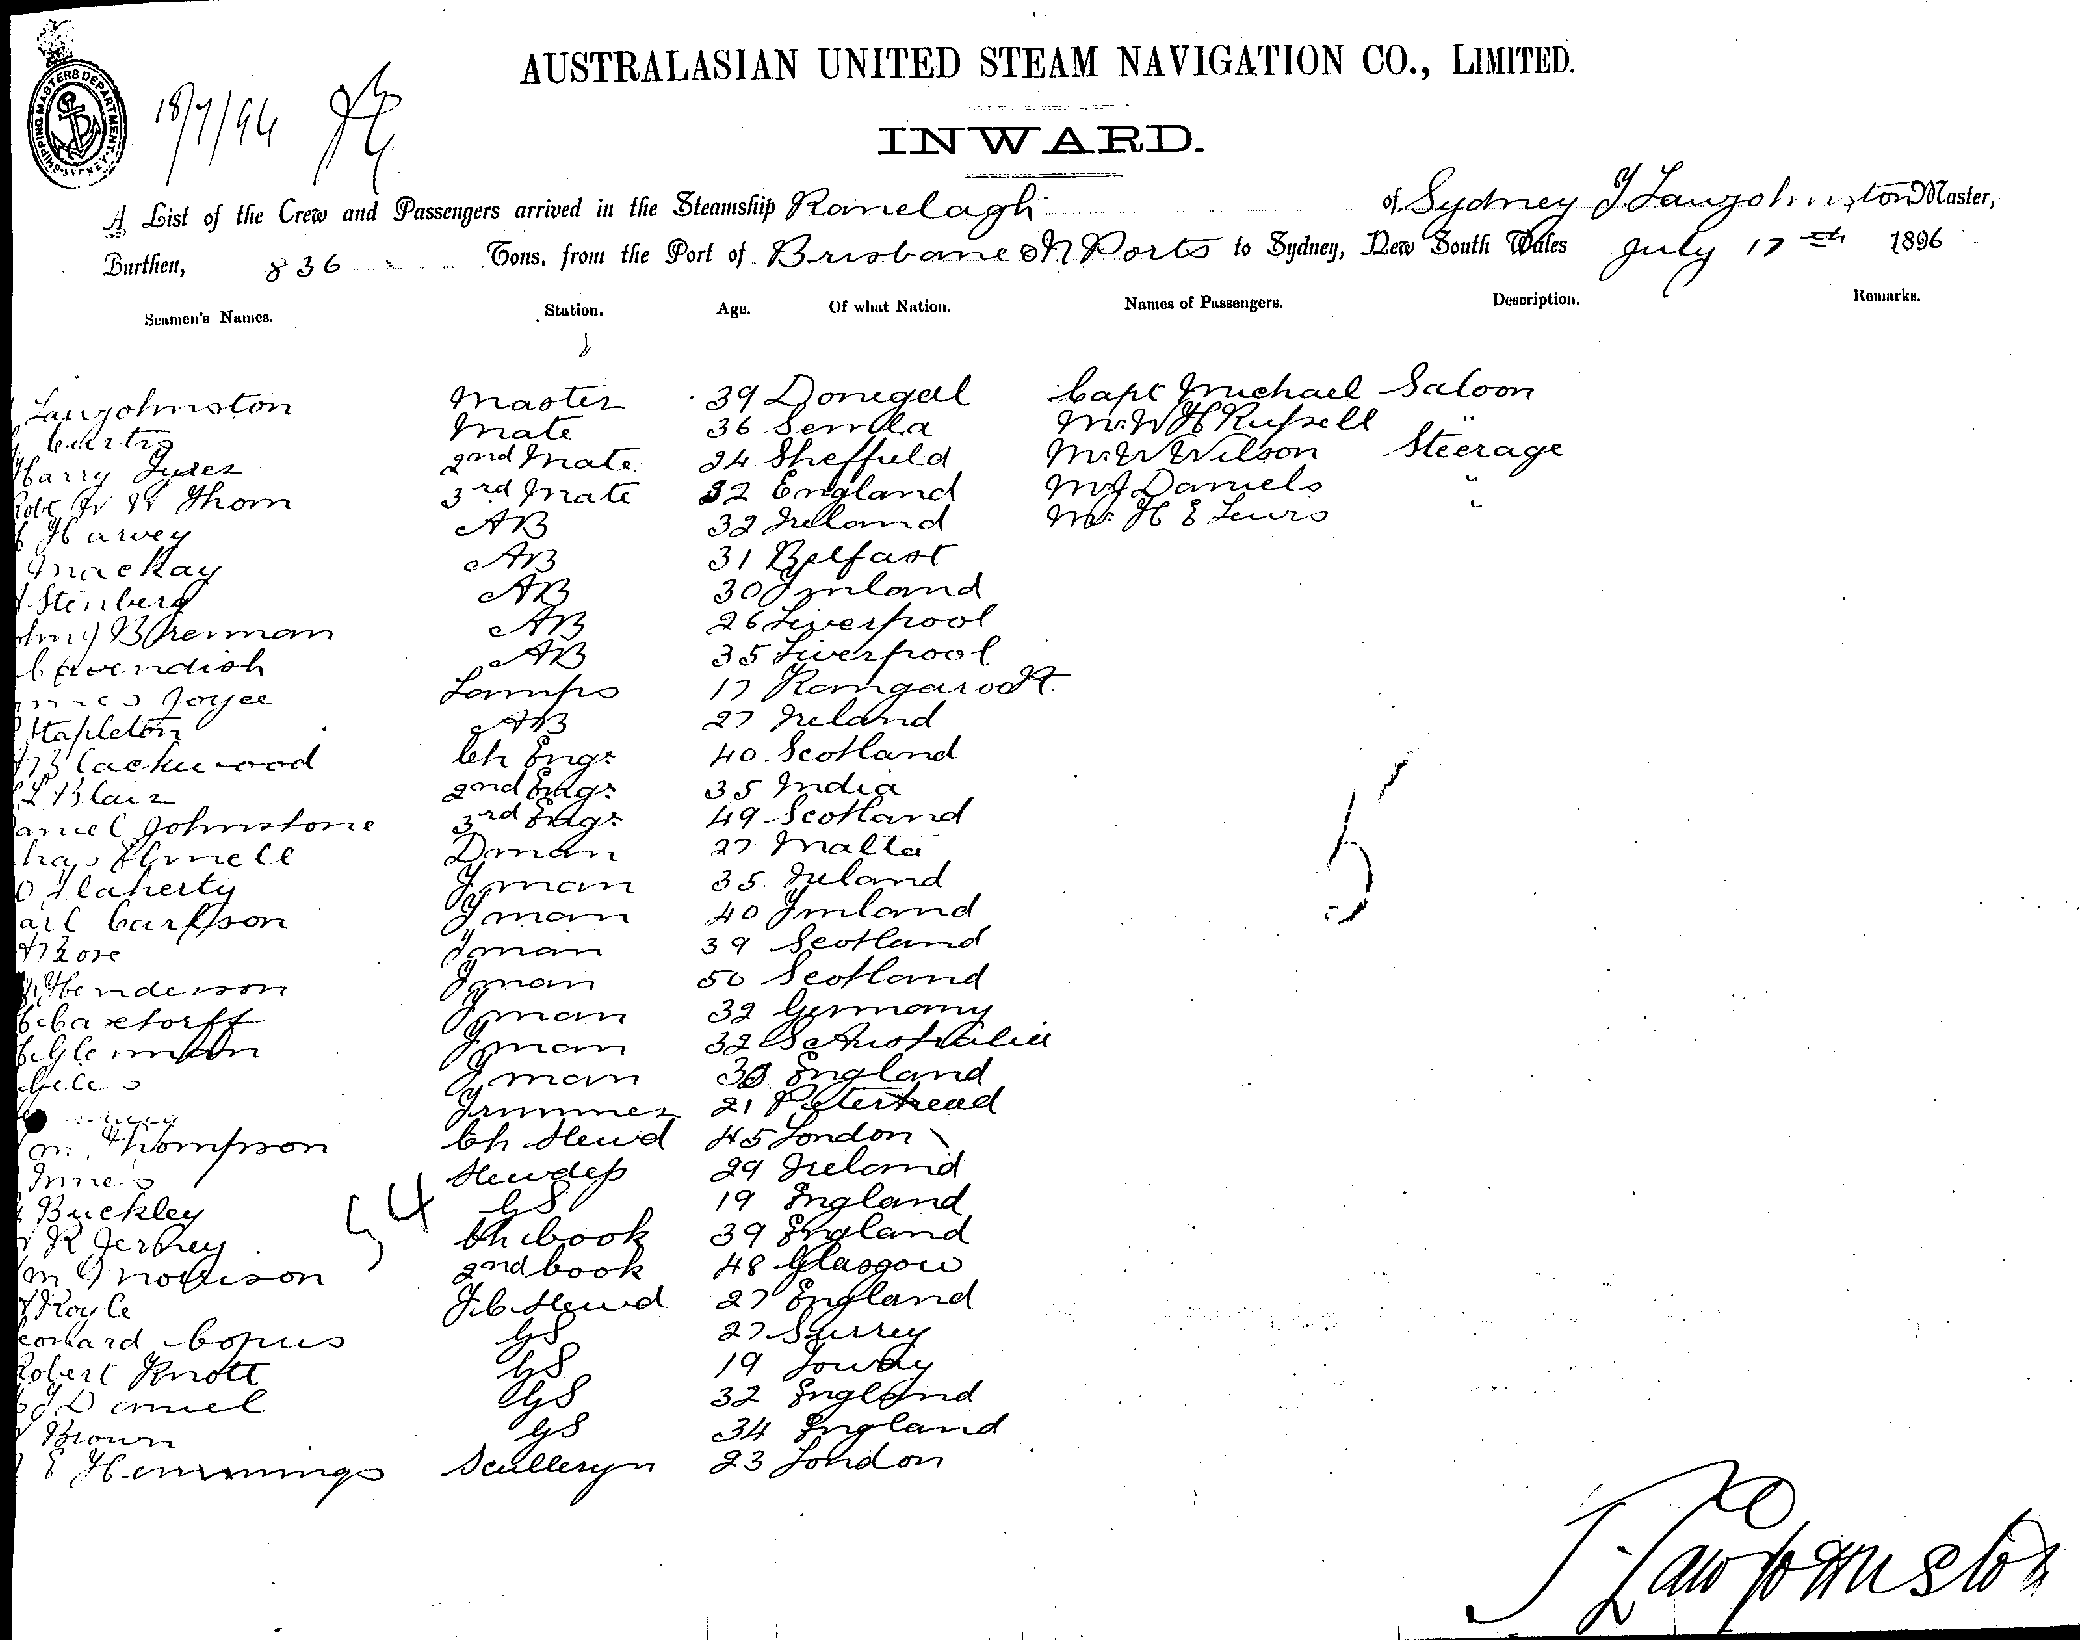 SHIPPING MASTERS DEPARTMENT
18/7/96
AUSTRALASIAN UNITED STEAM NAVIGATION CO., LIMITED.
INWARD.
A List of the Crew and Passengers arrived in the Steamship Ranelagh of Sydney J Laughohnston Master,
Burthen, 836 Tons, from the Port of Brisbane & N Ports to Sydney, New South Wales July 17th 1896
Seamen's Names. Station. Age. Of what Nation. Names of Passengers. Description. Remarks.
Master 39 Donegal Capt Michael Saloon
Curtis Mate 36 Mr W H Russell "
Harry 2nd Mate 24 Sheffield Mr W Wilson Steerage
Robt Thom 3rd Mate 32 England Mr J Daniels "
Harvey AB 32 Ireland Mr H E Lewis "
Mackay AB 31 Belfast
Stenberg AB 30 Finland
Brennan AB 26 Liverpool
Cavendish AB 35 Liverpool
Joyce Lamps 17
Stapleton AB 27 Ireland
Blackwood Ch Engr 40 Scotland
Blair 2nd Engr 35 India
Johnstone 3rd Engr 49 Scotland
Dman 27 Malta
O Flaherty Fman 35 Ireland
Carlsson Fman 40 Finland
Fman 39 Scotland
Henderson Fman 50 Scotland
Fman 32 Germany
Fman 32 S Australia
Giles Fman 33 England
Trimmer 21 Peterhead
Thompson Ch Stewd 45 London
Innes Stewdess 29 Ireland
Buckley GS 19 England
54
R Ch Cook 39 England
Morrison 2nd Cook 48 Glasgow
Royle F C Stewd 27 England
Copus GS 27 Surrey
Robert Knott GS 19
Daniel GS 32 England
Brown GS 34 England
E Hemmings Sculleryn 23 London
5